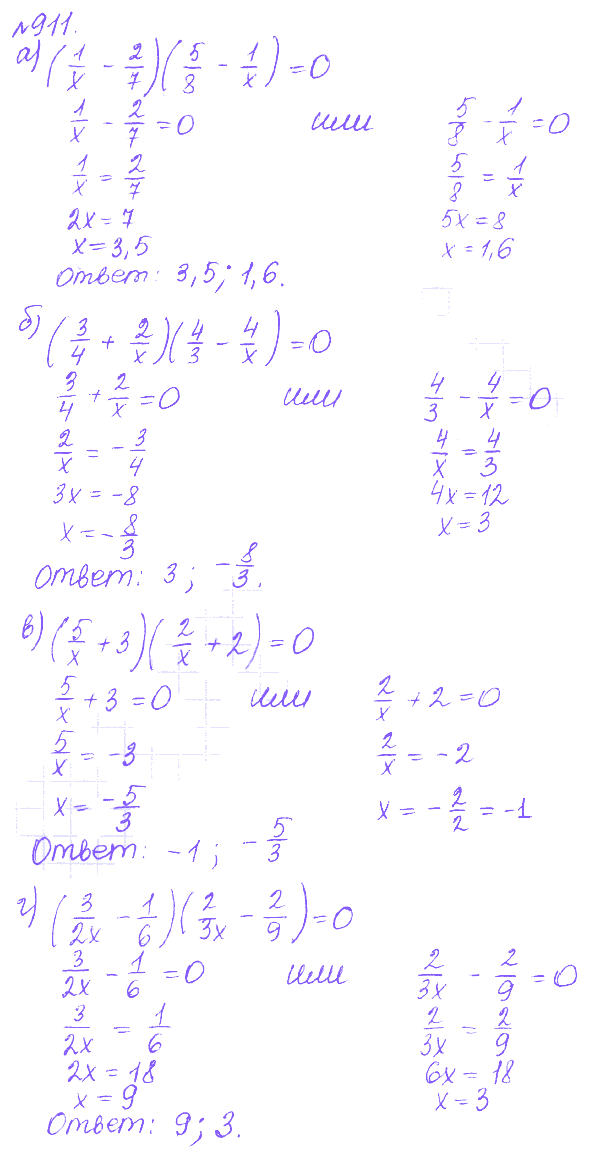 №911.
а) (1/x - 2/7)(5/8 - 1/x) = 0
1/x - 2/7 = 0 или 5/8 - 1/x = 0
1/x = 2/7 5/8 = 1/x
2x = 7 5x = 8
x = 3,5 x = 1,6
Ответ: 3,5; 1,6.
б) (3/4 + 2/x)(4/3 - 4/x) = 0
3/4 + 2/x = 0 или 4/3 - 4/x = 0
2/x = -3/4 4/x = 4/3
3x = -8 4x = 12
x = -8/3 x = 3
Ответ: 3; -8/3.
в) (5/x + 3)(2/x + 2) = 0
5/x + 3 = 0 или 2/x + 2 = 0
5/x = -3 2/x = -2
x = -5/3 x = -2/2 = -1
Ответ: -1; -5/3
г) (3/2x - 1/6)(2/3x - 2/9) = 0
3/2x - 1/6 = 0 или 2/3x - 2/9 = 0
3/2x = 1/6 2/3x = 2/9
2x = 18 6x = 18
x = 9 x = 3
Ответ: 9; 3.